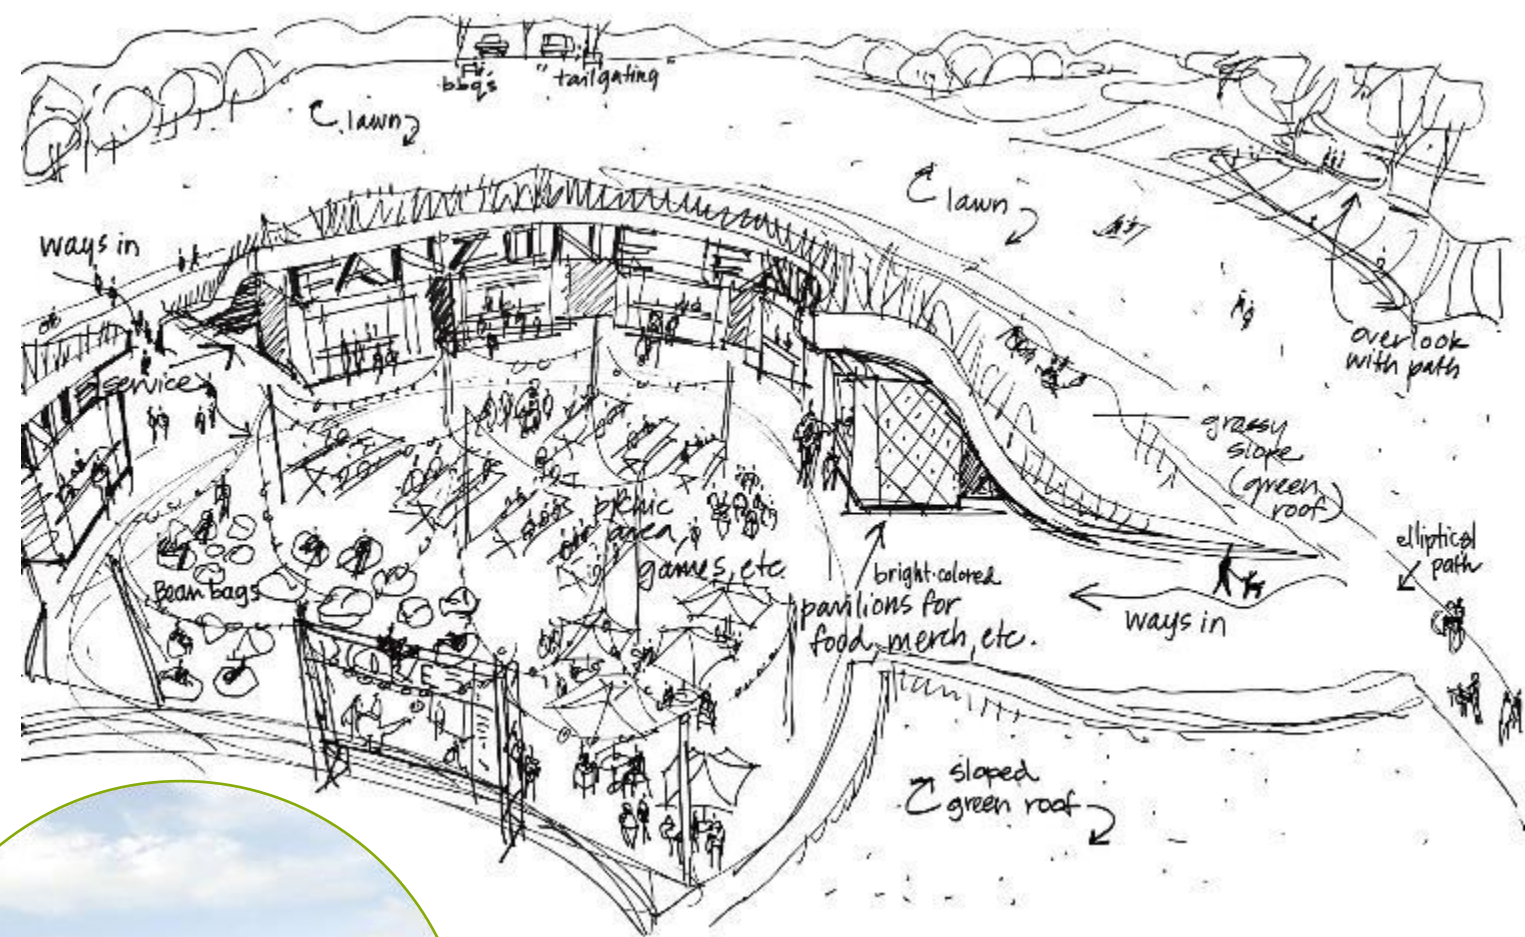 bbq's
"tailgating"
lawn
lawn
ways in
FAN ZONE FAN
service
overlook
with path
grassy
slope
(green
roof)
elliptical
path
picnic
area,
games, etc.
Bean bags
bright-colored
pavilions for
food, merch, etc.
ways in
sloped
green roof